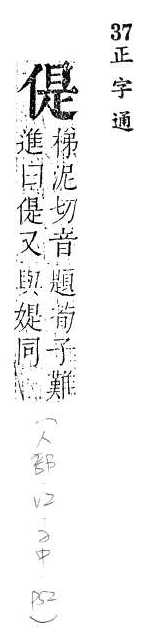 37 正字通
偍
梯泥切音題荀子難
進曰偍又與媞同
(人部 V2 子中 P52)